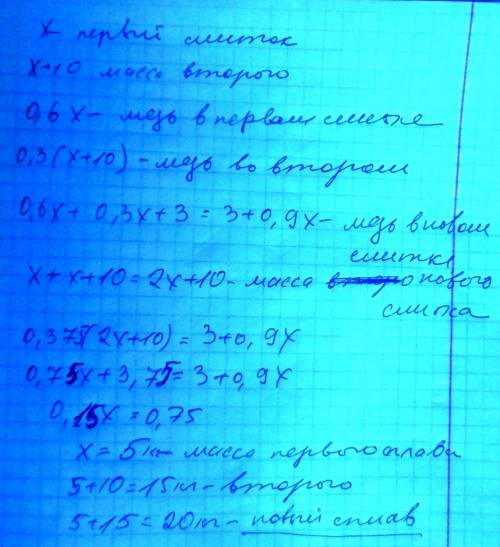 х- первый слиток
х+10 масса второго
0,6х- медь в первом слитке
0,3(х+10) - медь во втором
0,6х+ 0,3х+3 = 3+0,9х- медь в новом
слитке
х+х+10=2х+10- масса нового
слитка
0,375(2х+10) = 3+0,9х
0,75х+3,75=3+0,9х
0,15х=0,75
х=5кг- масса первого сплава
5+10=15кг- второго
5+15=20кг- новый сплав